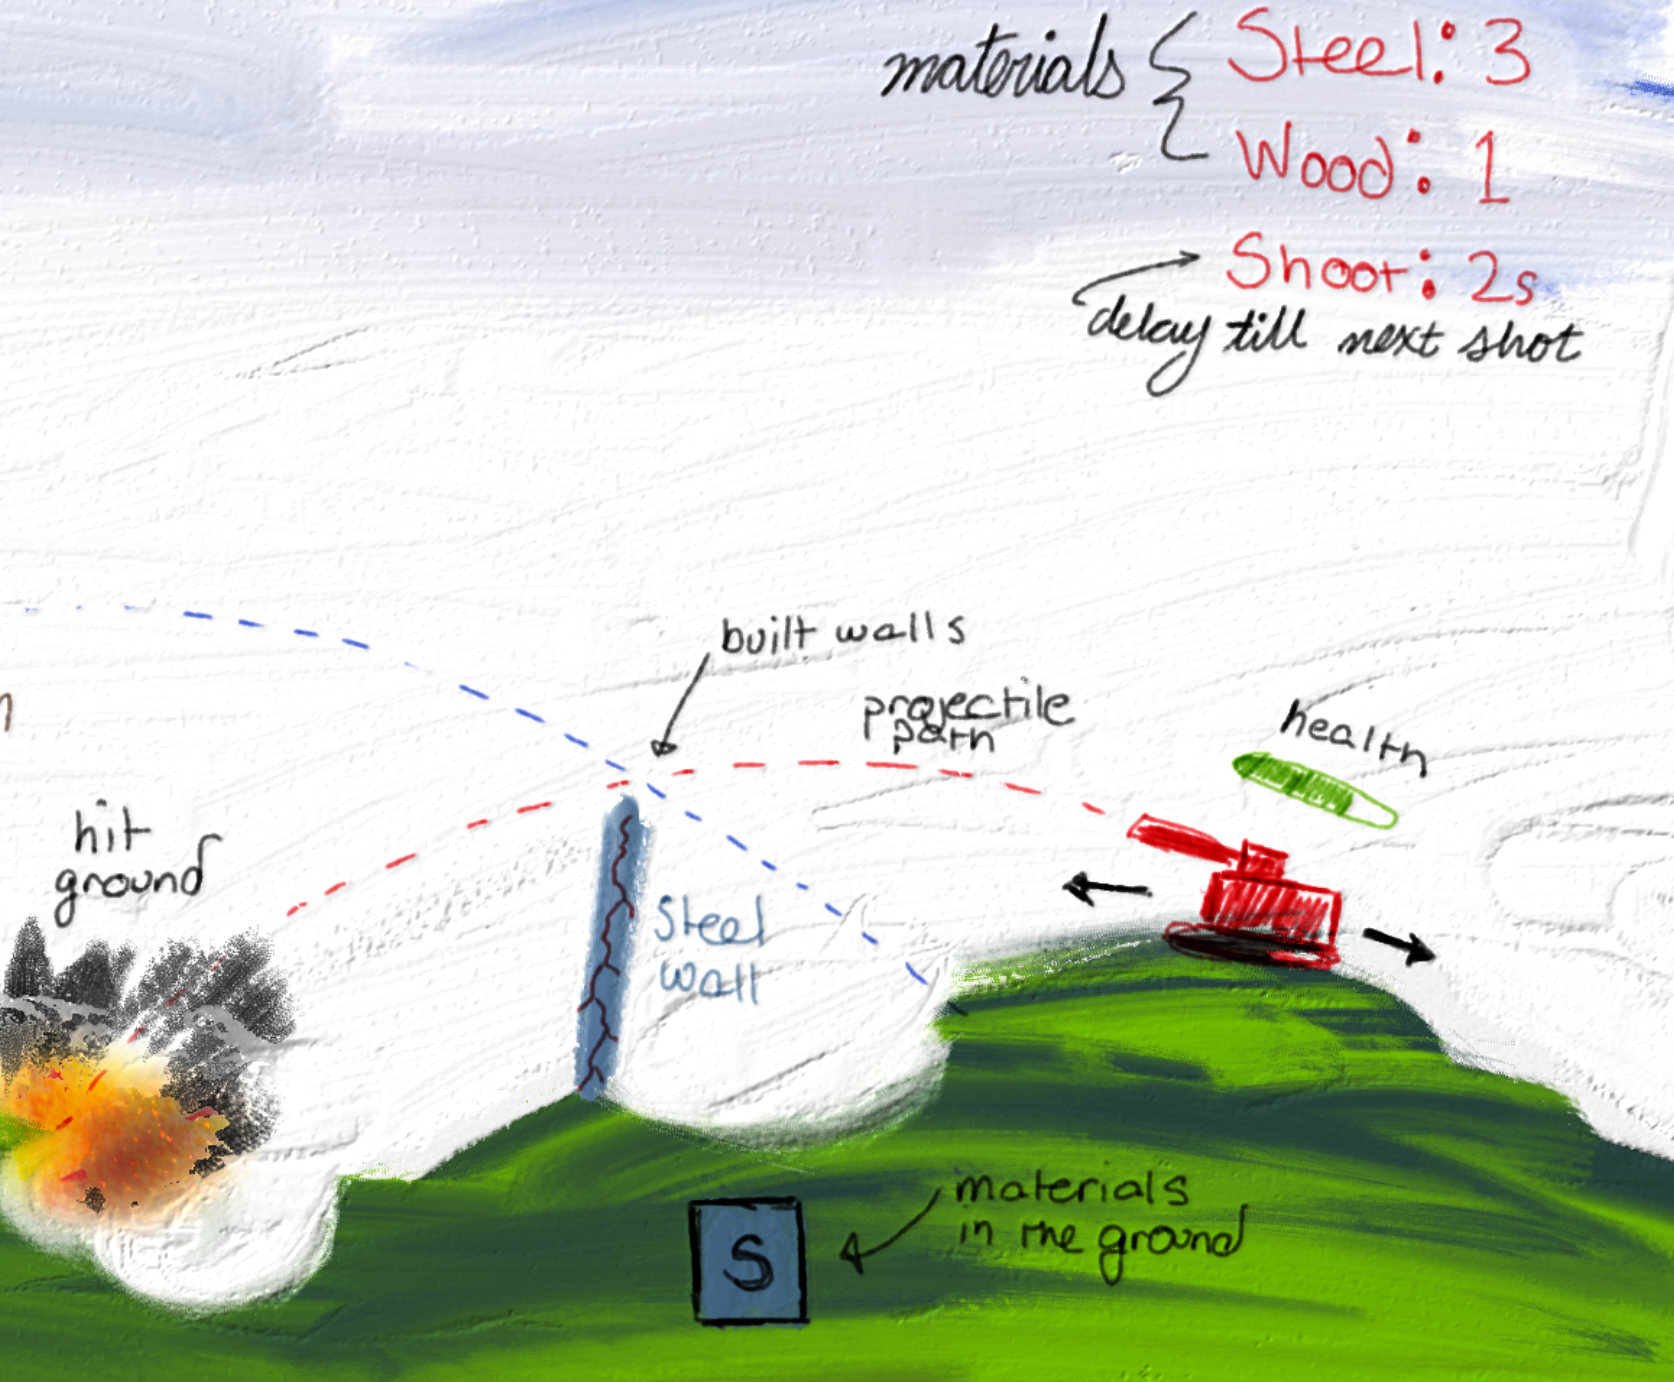 materials { Steel: 3
Wood: 1
Shoot: 2s
delay till next shot
built walls
projectile
path
health
hit
ground
Steel
wall
materials
in the ground
S